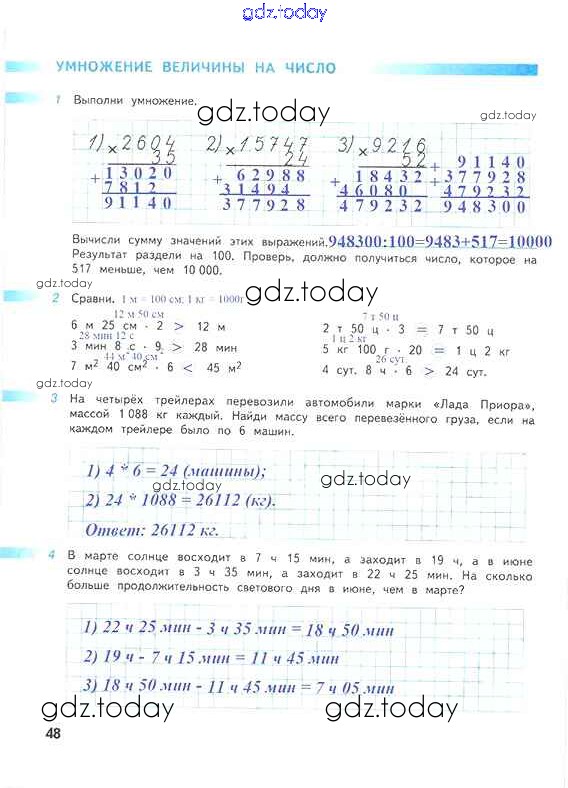 gdz.today
УМНОЖЕНИЕ ВЕЛИЧИНЫ НА ЧИСЛО
1 Выполни умножение.
gdz.today
1) × 2604 2) × 15747 3) × 9216
35 24 52 + 91140
+ 13020 + 62988 + 18432 + 377928
7812 31494 46080 479232
91140 377928 479232 948300
Вычисли сумму значений этих выражений.948300:100=9483+517=10000
Результат раздели на 100. Проверь, должно получиться число, которое на
517 меньше, чем 10 000.
gdz.today
gdz.today
2 Сравни. 1 м = 100 см; 1 кг = 1000г
gdz.today
12 м 50 см 7 т 50 ц
6 м 25 см · 2 > 12 м 2 т 50 ц · 3 = 7 т 50 ц
28 мин 12 с 1 ц 2 кг
3 мин 8 с · 9 > 28 мин 5 кг 100 г · 20 = 1 ц 2 кг
44 м² 40 см² 26 сут
7 м² 40 см² · 6 < 45 м² 4 сут. 8 ч · 6 > 24 сут.
gdz.today
3 На четырёх трейлерах перевозили автомобили марки «Лада Приора»,
массой 1 088 кг каждый. Найди массу всего перевезённого груза, если на
каждом трейлере было по 6 машин.
1) 4 * 6 = 24 (машины);
gdz.today
gdz.today
2) 24 * 1088 = 26112 (кг).
Ответ: 26112 кг.
4 В марте солнце восходит в 7 ч 15 мин, а заходит в 19 ч, а в июне
солнце восходит в 3 ч 35 мин, а заходит в 22 ч 25 мин. На сколько
больше продолжительность светового дня в июне, чем в марте?
1) 22 ч 25 мин - 3 ч 35 мин = 18 ч 50 мин
2) 19 ч - 7 ч 15 мин = 11 ч 45 мин
3) 18 ч 50 мин - 11 ч 45 мин = 7 ч 05 мин
gdz.today
gdz.today
48